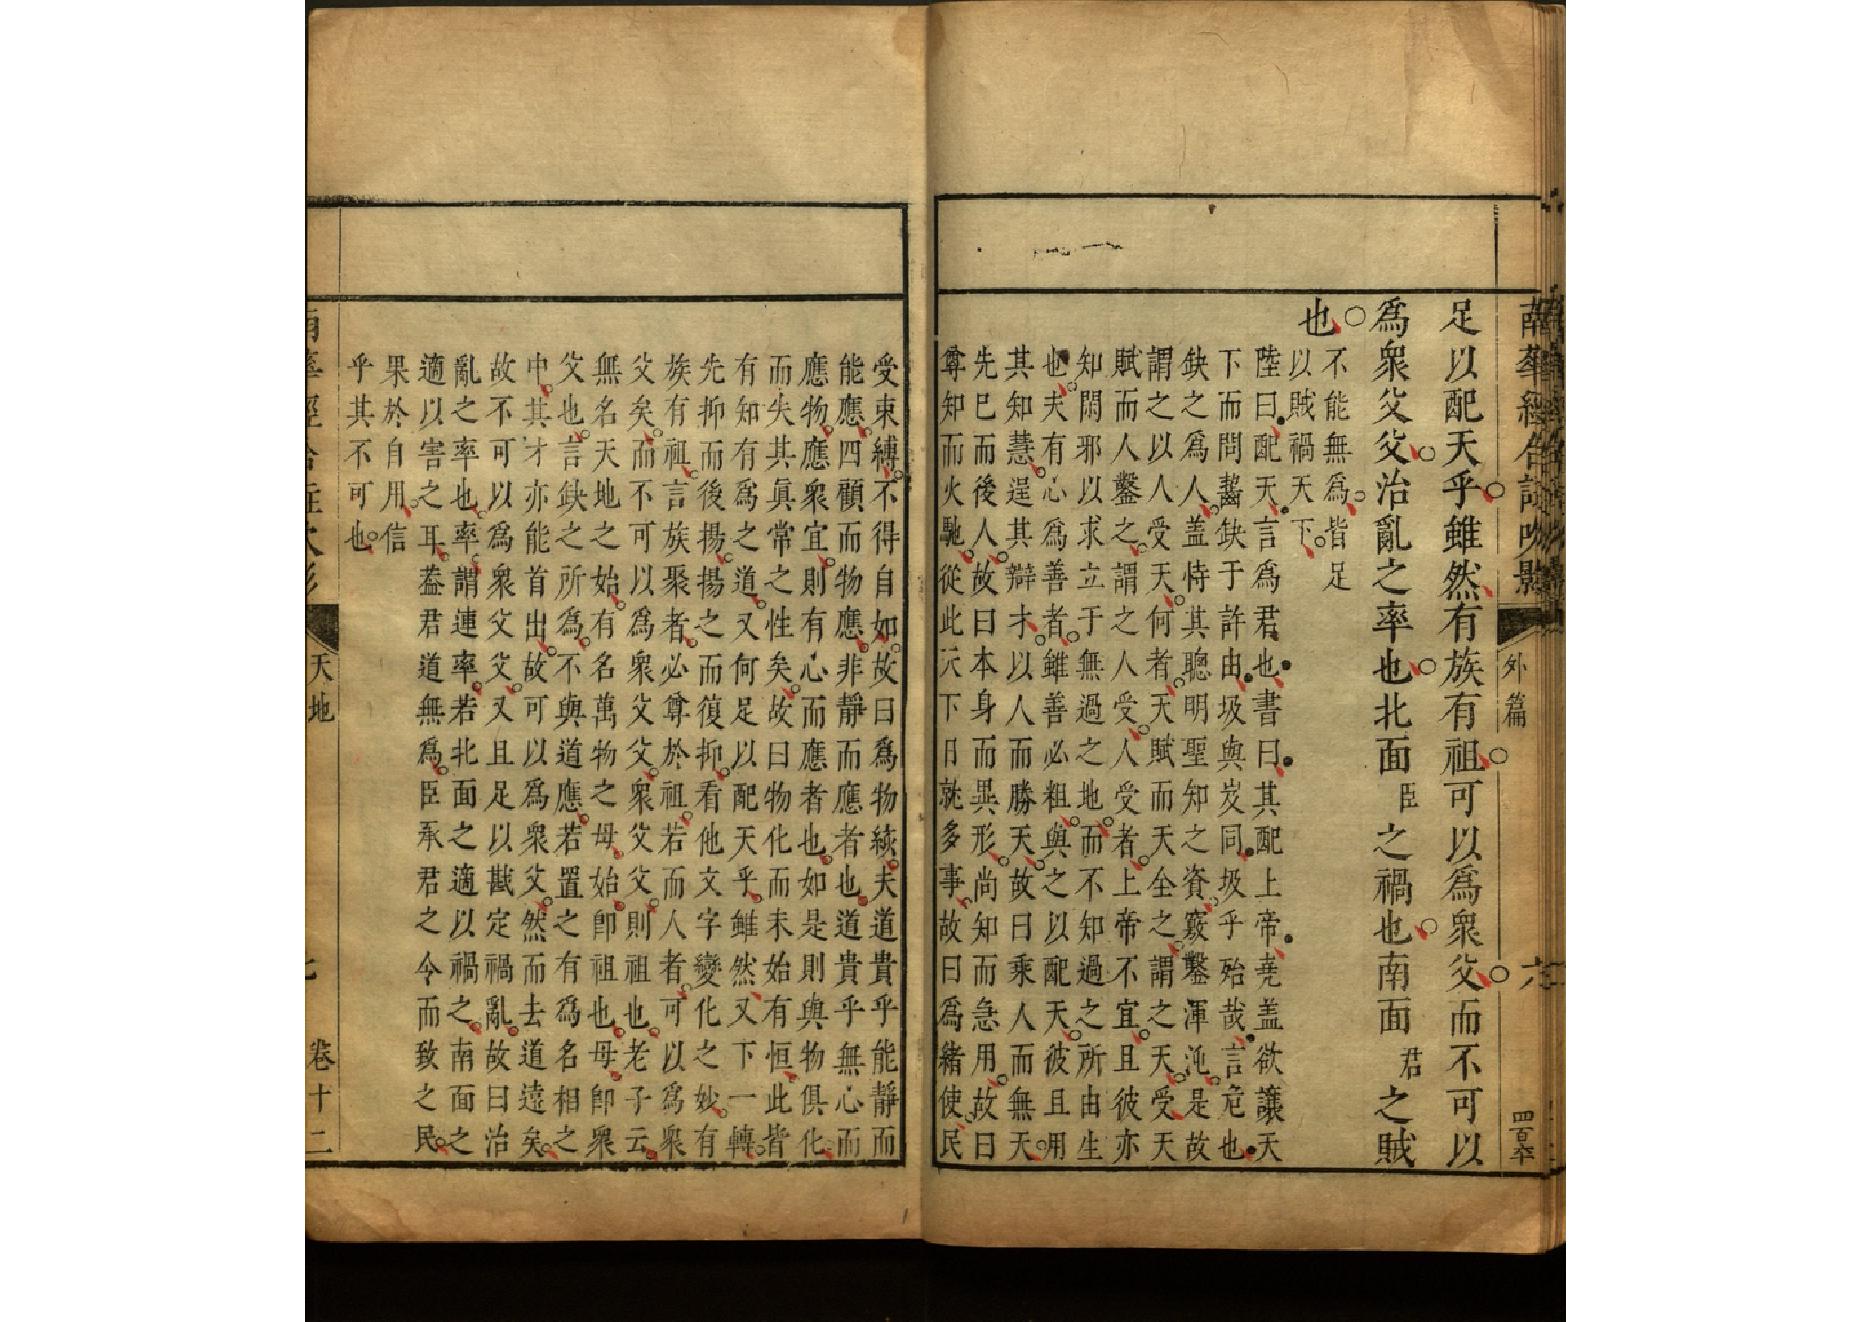 南華經合註吹影
外篇
六
足以配天乎雖然有族有祖可以爲衆父而不可以
爲衆父父治亂之率也北面臣之禍也南面君之賊
也
不能無爲皆足
以賊禍天下
陸曰配天言爲君也書曰其配上帝堯盖欲讓天
下而問齧缺于許由圾與岌同圾乎殆哉言危也
缺之爲人盖恃其聰明聖知之資竅鑿渾沌是故
謂之以人受天何者天賦而天全之謂之天受天
賦而人鑿之謂之人受人受者上帝不宜且彼亦
知閑邪以求立于無過之地而不知過之所由生
也夫有心爲善者雖善必粗與之以配天彼且用
其知慧逞其辯才以人而勝天故曰乘人而無天
先巳而後人故曰本身而異形尚知而急用故曰
尊知而火馳從此天下日就多事故曰爲緒使民
受束縛不得自如故曰爲物絯夫道貴乎能靜而
能應四顧而物應非靜而應者也道貴乎無心而
應物應衆宜則有心而應者也如是則與物俱化
而失其眞常之性矣故曰物化而未始有恒此皆
有知有爲之道又何足以配天乎雖然又下一轉
先抑而後揚揚之而復抑看他文字變化之妙有
族有祖言族聚者必尊於祖若而人者可以爲衆
父矣而不可以爲衆父父衆父父則祖也老子云
無名天地之始有名萬物之母始卽祖也母卽衆
父也言缺之所爲不與道應若置之有爲名相之
中其才亦能首出故可以爲衆父然而去道遠矣
故不可以爲衆父父又且足以戡定禍亂故曰治
亂之率也率謂連率若北面之適以禍之南面之
適以害之耳葢君道無爲臣承君之令而致之民
果於自用信
乎其不可也
天地
卷十二